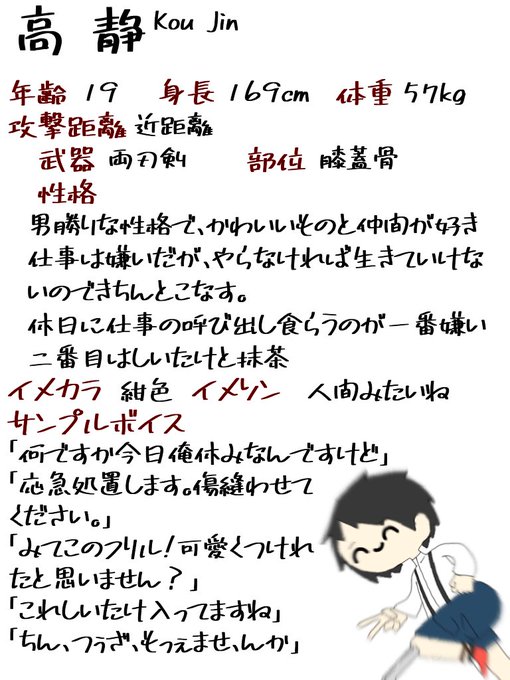 高 静 Kou Jin
年齢 19 身長 169cm 体重 57kg
攻撃距離 近距離
武器 両刃剣 部位 膝蓋骨
性格
男勝りな性格で、かわいいものと仲間が好き
仕事は嫌いだが、やらなければ生きていけな
いのできちんとこなす。
休日に仕事の呼び出し食らうのが一番嫌い
二番目はしいたけと抹茶
イメカラ 紺色 イメソン 人間みたいね
サンプルボイス
「何ですか今日俺休みなんですけど」
「応急処置します。傷縫わせて
ください。」
「みてこのフリル！可愛くつけれ
たと思いません？」
「これしいたけ入ってますね」
「ちん、つぅざ、そつぇませ、んか」